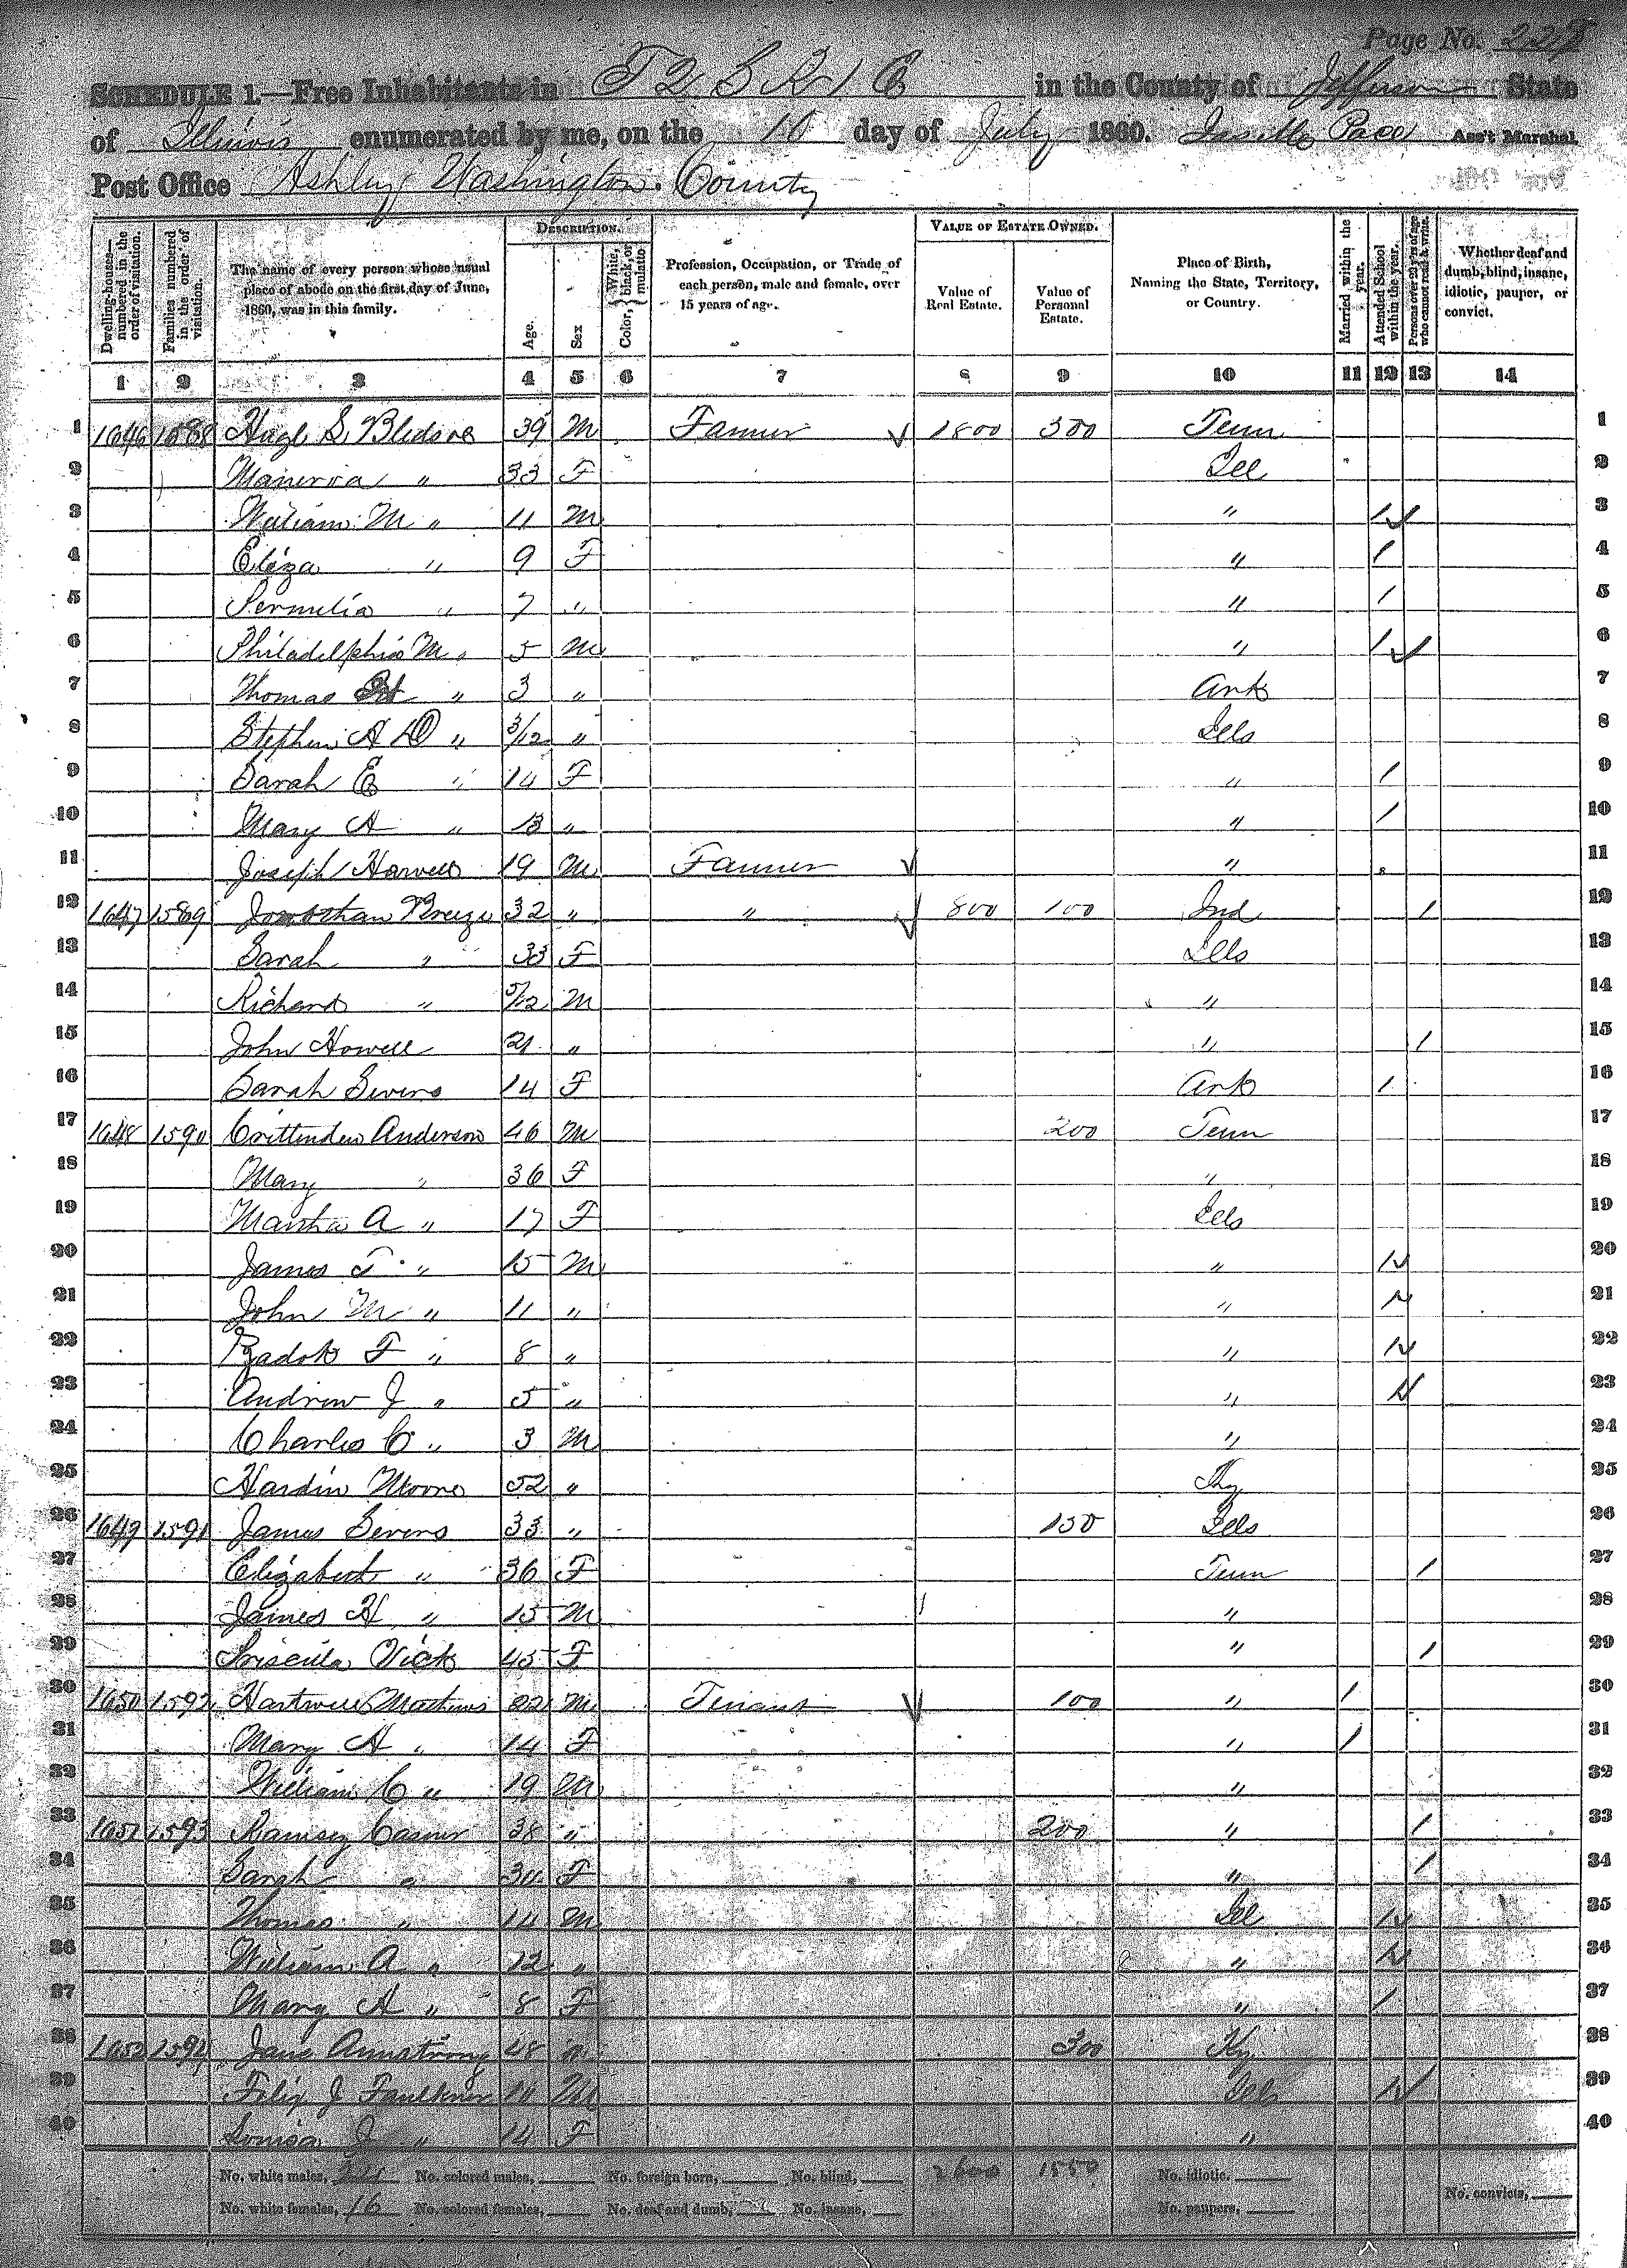 Page No. 228
SCHEDULE 1.—Free Inhabitants in T 2 S R 1 E in the County of Jefferson State
of Illinois enumerated by me, on the 10 day of July 1860. Pace Ass't Marshal.
Post Office Ashley Washington County
Dwelling-houses—numbered in the order of visitation. Families numbered in the order of visitation. The name of every person whose usual place of abode on the first day of June, 1860, was in this family. DESCRIPTION. Age. Sex Color, White, black, or mulatto Profession, Occupation, or Trade of each person, male and female, over 15 years of age. VALUE OF ESTATE OWNED. Value of Real Estate. Value of Personal Estate. Place of Birth, Naming the State, Territory, or Country. Married within the year. Attended School within the year. Persons over 20 y'rs of age who cannot read & write. Whether deaf and dumb, blind, insane, idiotic, pauper, or convict.
1 2 3 4 5 6 7 8 9 10 11 12 13 14
1 1646 1588 Hugh S. Bledsoe 39 M Farmer 1800 300 Tenn 1
2 Manerva " 33 F Ill 2
3 William M " 11 M " 1 3
4 Eliza " 9 F " 1 4
5 Permelia " 7 " " 1 5
6 Philadelphia M " 5 M " 1 6
7 Thomas " 3 " Ark 7
8 Stephen A D " 3/12 " Ills 8
9 Sarah E " 14 F " 1 9
10 Mary A " 13 " " 1 10
11 Joseph Harwell 19 M Farmer " 11
12 1647 1589 Jonathan Breeze 32 " " 800 100 Ind 1 12
13 Sarah " 33 F Ills 13
14 Richard " 5/12 M " 14
15 John Howell 21 " " 1 15
16 Sarah Severs 14 F Ark 1 16
17 1648 1590 Crittenden Anderson 46 M 200 Tenn 17
18 Mary " 36 F " 18
19 Martha A " 17 F Ills 19
20 James T " 15 M " 1 20
21 John M " 11 " " 1 21
22 Zadok F " 8 " " 1 22
23 Andrew J " 5 " " 1 23
24 Charles C " 3 M " 24
25 Hardin Moore 52 " Ky 25
26 1649 1591 James Severs 33 " 150 Ills 26
27 Elizabeth " 36 F Tenn 1 27
28 James H " 15 M " 28
29 Priscilla Vick 45 F " 1 29
30 1650 1592 Hartwell Mathews 22 M Tenant 100 " 1 30
31 Mary A " 14 F " 1 31
32 William C " 19 M " 32
33 1651 1593 Ramsey Casner 38 " 200 " 1 33
34 Sarah " 34 F " 1 34
35 Thomas " 14 M Ill 1 35
36 William A " 12 " " 1 36
37 Mary A " 8 F " 1 37
38 1652 1594 Jane Armstrong 48 300 Ky 38
39 Felix J Faulkner 10 M Ills 1 39
40 Louisa J " 14 F " 40
No. white males, No. colored males, No. foreign born, No. blind, 2600 1550 No. idiotic,
No. white females, 16 No. colored females, No. deaf and dumb, No. insane, No. paupers, No. convicts,